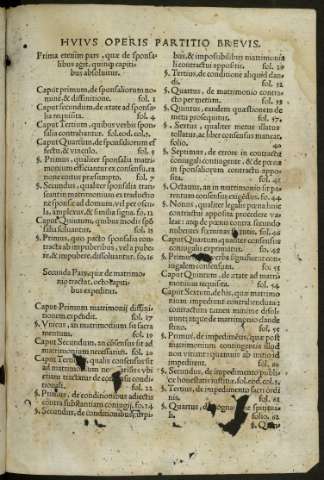 HVIVS OPERIS PARTITIO BREVIS.
Prima etenim pars, quæ de sponsa-
libus agit, quinq; capiti-
bus absoluitur.
Caput primum, de sponsaliorum no-
mine & diffinitione. fol. 1
Caput secundum, de ætate ad sponsa-
lia requisita. fol. 4
Caput Tertium, quibus verbis spon-
salia contrahantur. fol. eod. col. 2.
Caput Quartum, de sponsaliorum ef-
fectu, & vinculo. fol. 6
§. Primus, qualiter sponsalia matri-
monium efficiantur ex consensu, ex
cone entius præsumpto. fol. 7
§. Secundus, qualiter sponsalia tran-
seant in matrimonium ex traductio-
ne sponsæ ad domum, vel per oscu-
la, amplexus, & similia signa. fo. 12
Caput Quintum, quibus modis spō-
salia soluantur. fol. 15
§. Primus, quo pacto sponsalia con-
tracta ab impuberibus, vel à pube-
re, & impubere, dissoluantur. fo. 16
Secunda Pars, quæ de matrimo-
nio tractat, octo capiti-
bus expeditur.
Caput Primum matrimonij diffini-
tionem expedit. fol. 17
§. Vnicus, an matrimonium sit sacra-
mentum. fol. 19
Caput Secundum, an cōsensus sit ad
matrimonium necessarius. fol. 20
Caput Tertium, qualis consensus sit
ad matrimonium vbi
etiam tractatur de consensu condi-
tionali. fol. 22
§. Primus, de conditionibus adiectis
contra substantiam coniugij. fo. 24
§. Secundus, de conditionibus
bus, & impossibilibus matrimonio
seu contractui appositis. fol. 28
§. Tertius, de conditione aliquid dan-
di. fol. 32
§. Quartus, de matrimonio contra-
cto per metum. fol. 35
§. Quintus, eandem quæstionem de
metu prosequitur. fol. 37.
§. Sextus, qualiter metus illatus
tollatur, ac liber consensus maneat,
solio. 40
§. Septimus, de errore in contractu
coniugali contingente, & de pœna
in sponsaliorum contractu appo-
sita. fol. 42
§. Octauus, an in matrimonio sit pa-
rentum consensus exigēdus. fo. 44.
§. Nonus, qualiter legalis pœna huic
contractui apposita procedere va-
fol. 46
Caput Quartum, qualiter consensus
coniugalis exprimatur. fo. 49
§. Primus, verba significatur con-
iugalem consensum. fo. 55
Caput Quintum, de ætate ad matri-
monium requisita. fol. 54
Caput Sextum, de his, quæ matrimo-
nium impediunt contrahendum:
contractum tamen minime dissol-
uunt: atque de matrimonio clande-
stino. fol. 55
§. Primus, de impedimēto, quæ post
matrimonium contingentia illud
non vitiant: quamuis ab initio id
impediunt. fol. 60
§. Secundus, de impedimento public-
æ honestatis iustitiæ. fol. eod. col. 2.
§. Tertius, de impedimento sacri ordi-
nis. fol. 61
§. Quartus, de cognatione spiritua-
li. folio. 62